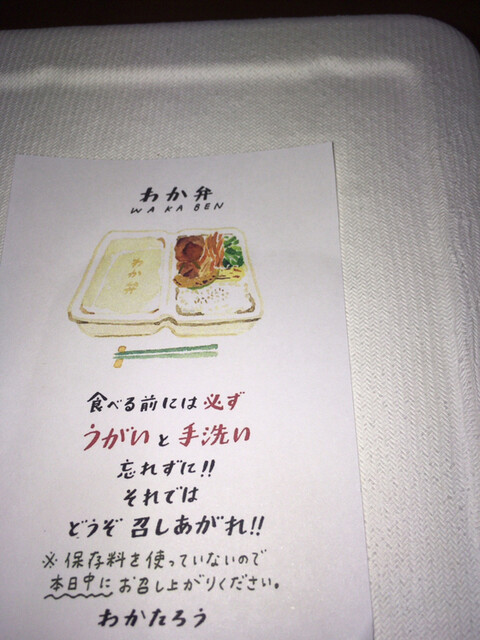 わか弁
WAKABEN
わか弁
食べる前には必ず
うがいと手洗い
忘れずに!!
それでは
どうぞ召しあがれ!!
※保存料を使っていないので
本日中にお召し上がりください。
わかたろう